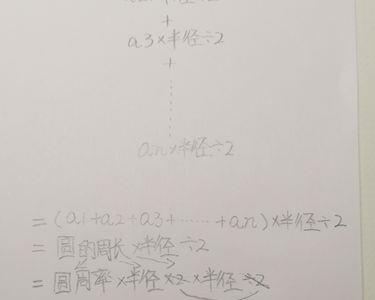 a2×半径÷2
+
a3×半径÷2
+
⋮
an×半径÷2
=(a1+a2+a3+……+an)×半径÷2
=圆的周长×半径÷2
=圆周率×半径×2×半径÷2